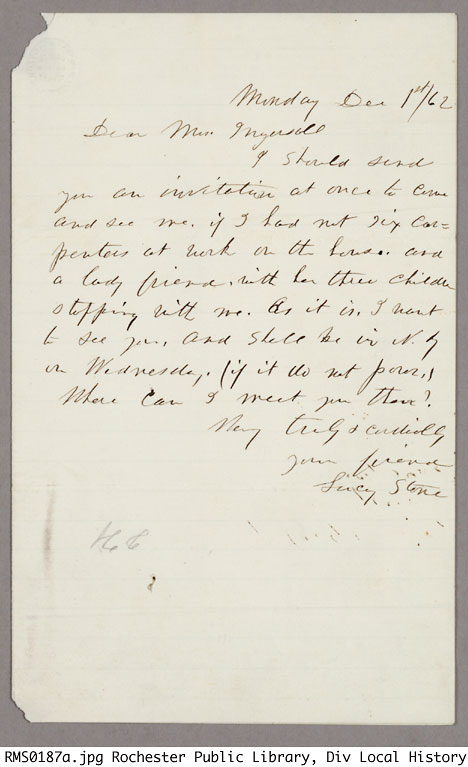 Monday Dec 1st/62
Dear Mrs. Ingersoll
I should send
you an invitation at once to come
and see me. if I had not six car=
penters at work on the house. and
a lady friend. with her three children
stopping with me. As it is, I want
to see you, and shall be in N. Y
on Wednesday, (if it do not pour,)
Where can I meet you there?
Very truly & cordially
your friend
Lucy Stone
RMS0187a.jpg Rochester Public Library, Div Local History